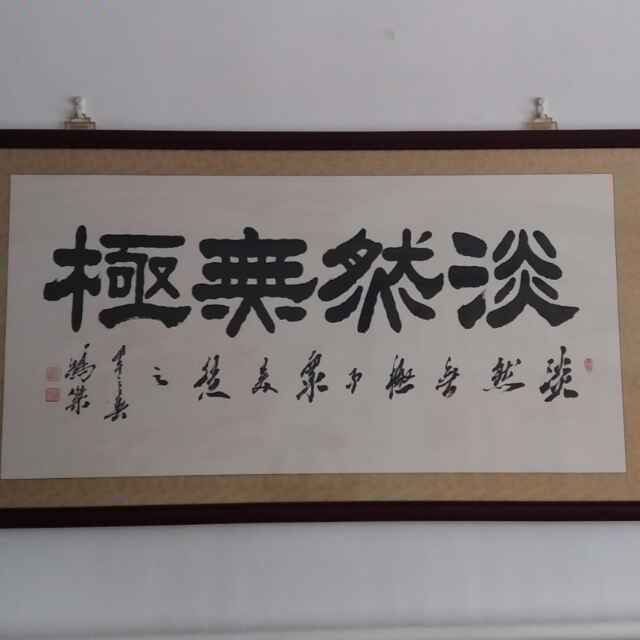 淡然無極
淡然無極而眾美從之